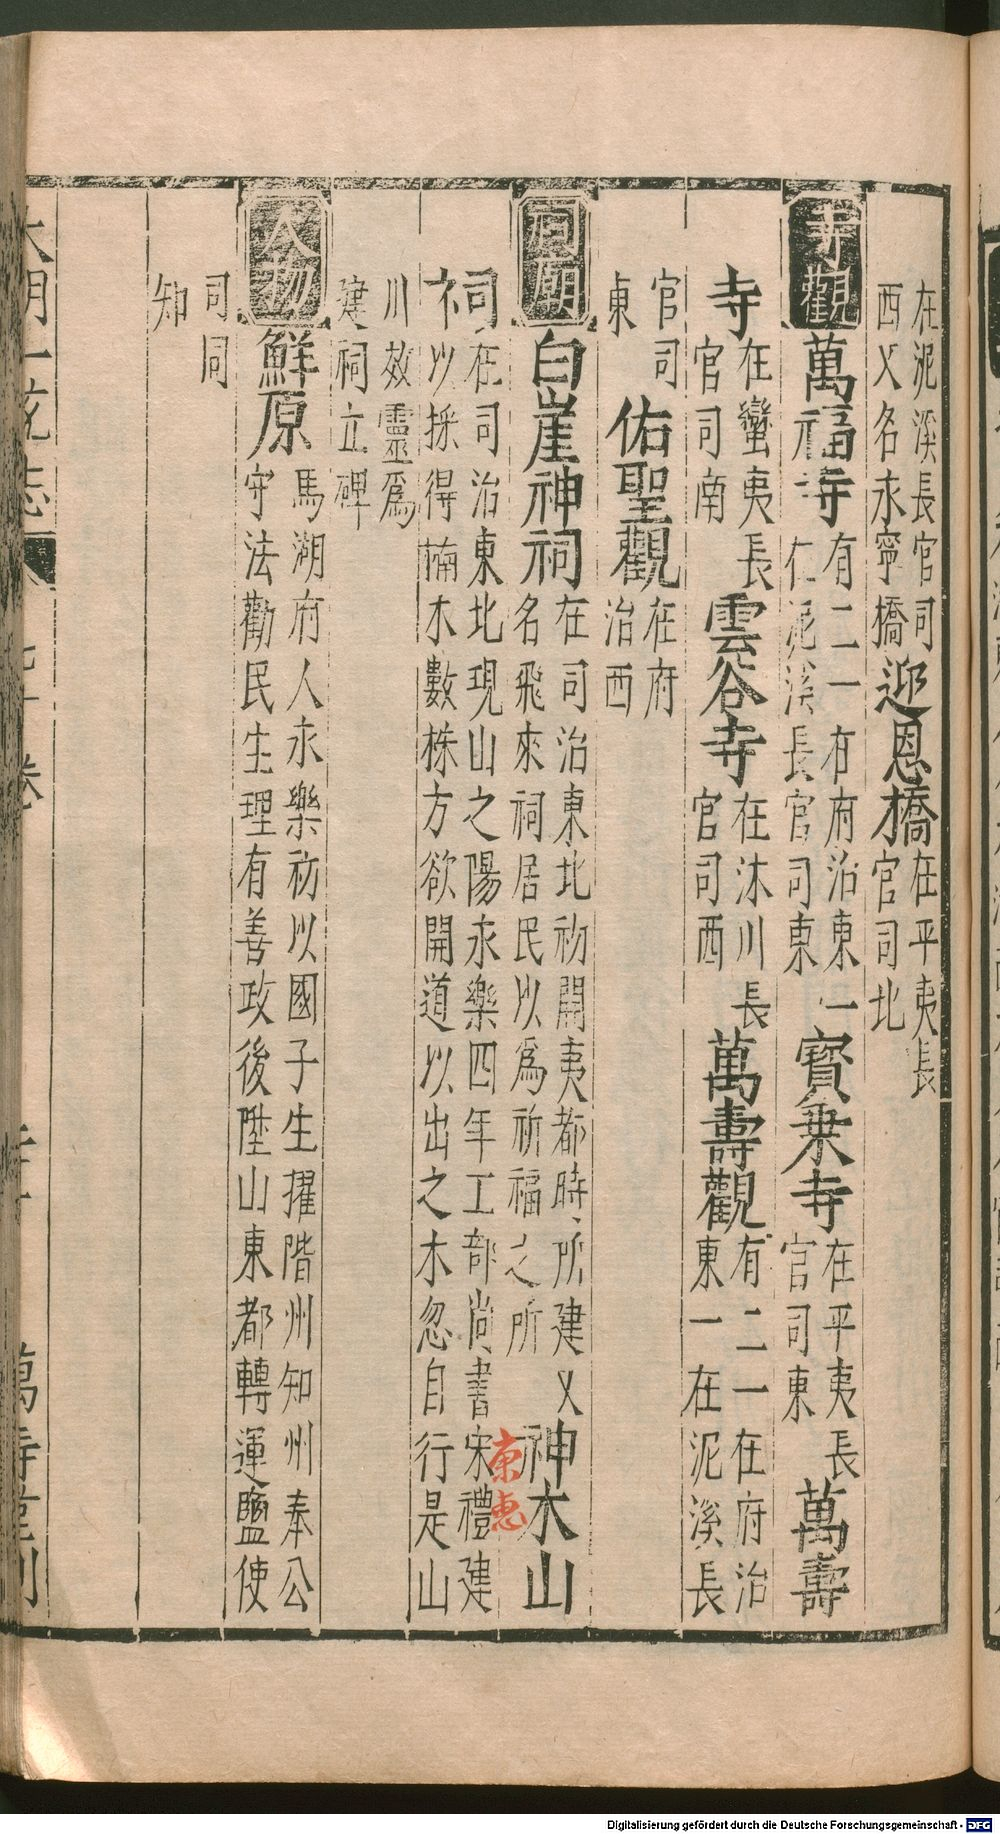 在泥溪長官司
西又名永寧橋
迎恩橋
在平夷長
官司北
寺觀
萬福寺
有二一
仁泥溪長官司東
有府治東一
寶乗寺
在平夷長
官司東
萬壽
寺
在蠻夷長
官司南
雲谷寺
在沐川長
官司西
萬壽觀
有二一在府治
東一在泥溪長
官司
東
佑聖觀
在府
治西
祠廟
白崖神祠
在司治東北初開夷都時所建又
名飛來祠居民以爲祈福之所
神木山
祠
在司治東北現山之陽永樂四年工部尚書宋禮建
以採得楠木數株方欲開道以出之木忽自行是山
川效靈爲
建祠立碑
人物
鮮原
馬湖府人永樂初以國子生擢階州知州奉公
守法勸民生理有善政後陞山東都轉運鹽使
司同
知
大明一統志
卷
萬壽堂刊
東惠
Digitalisierung gefördert durch die Deutsche Forschungsgemeinschaft - DFG